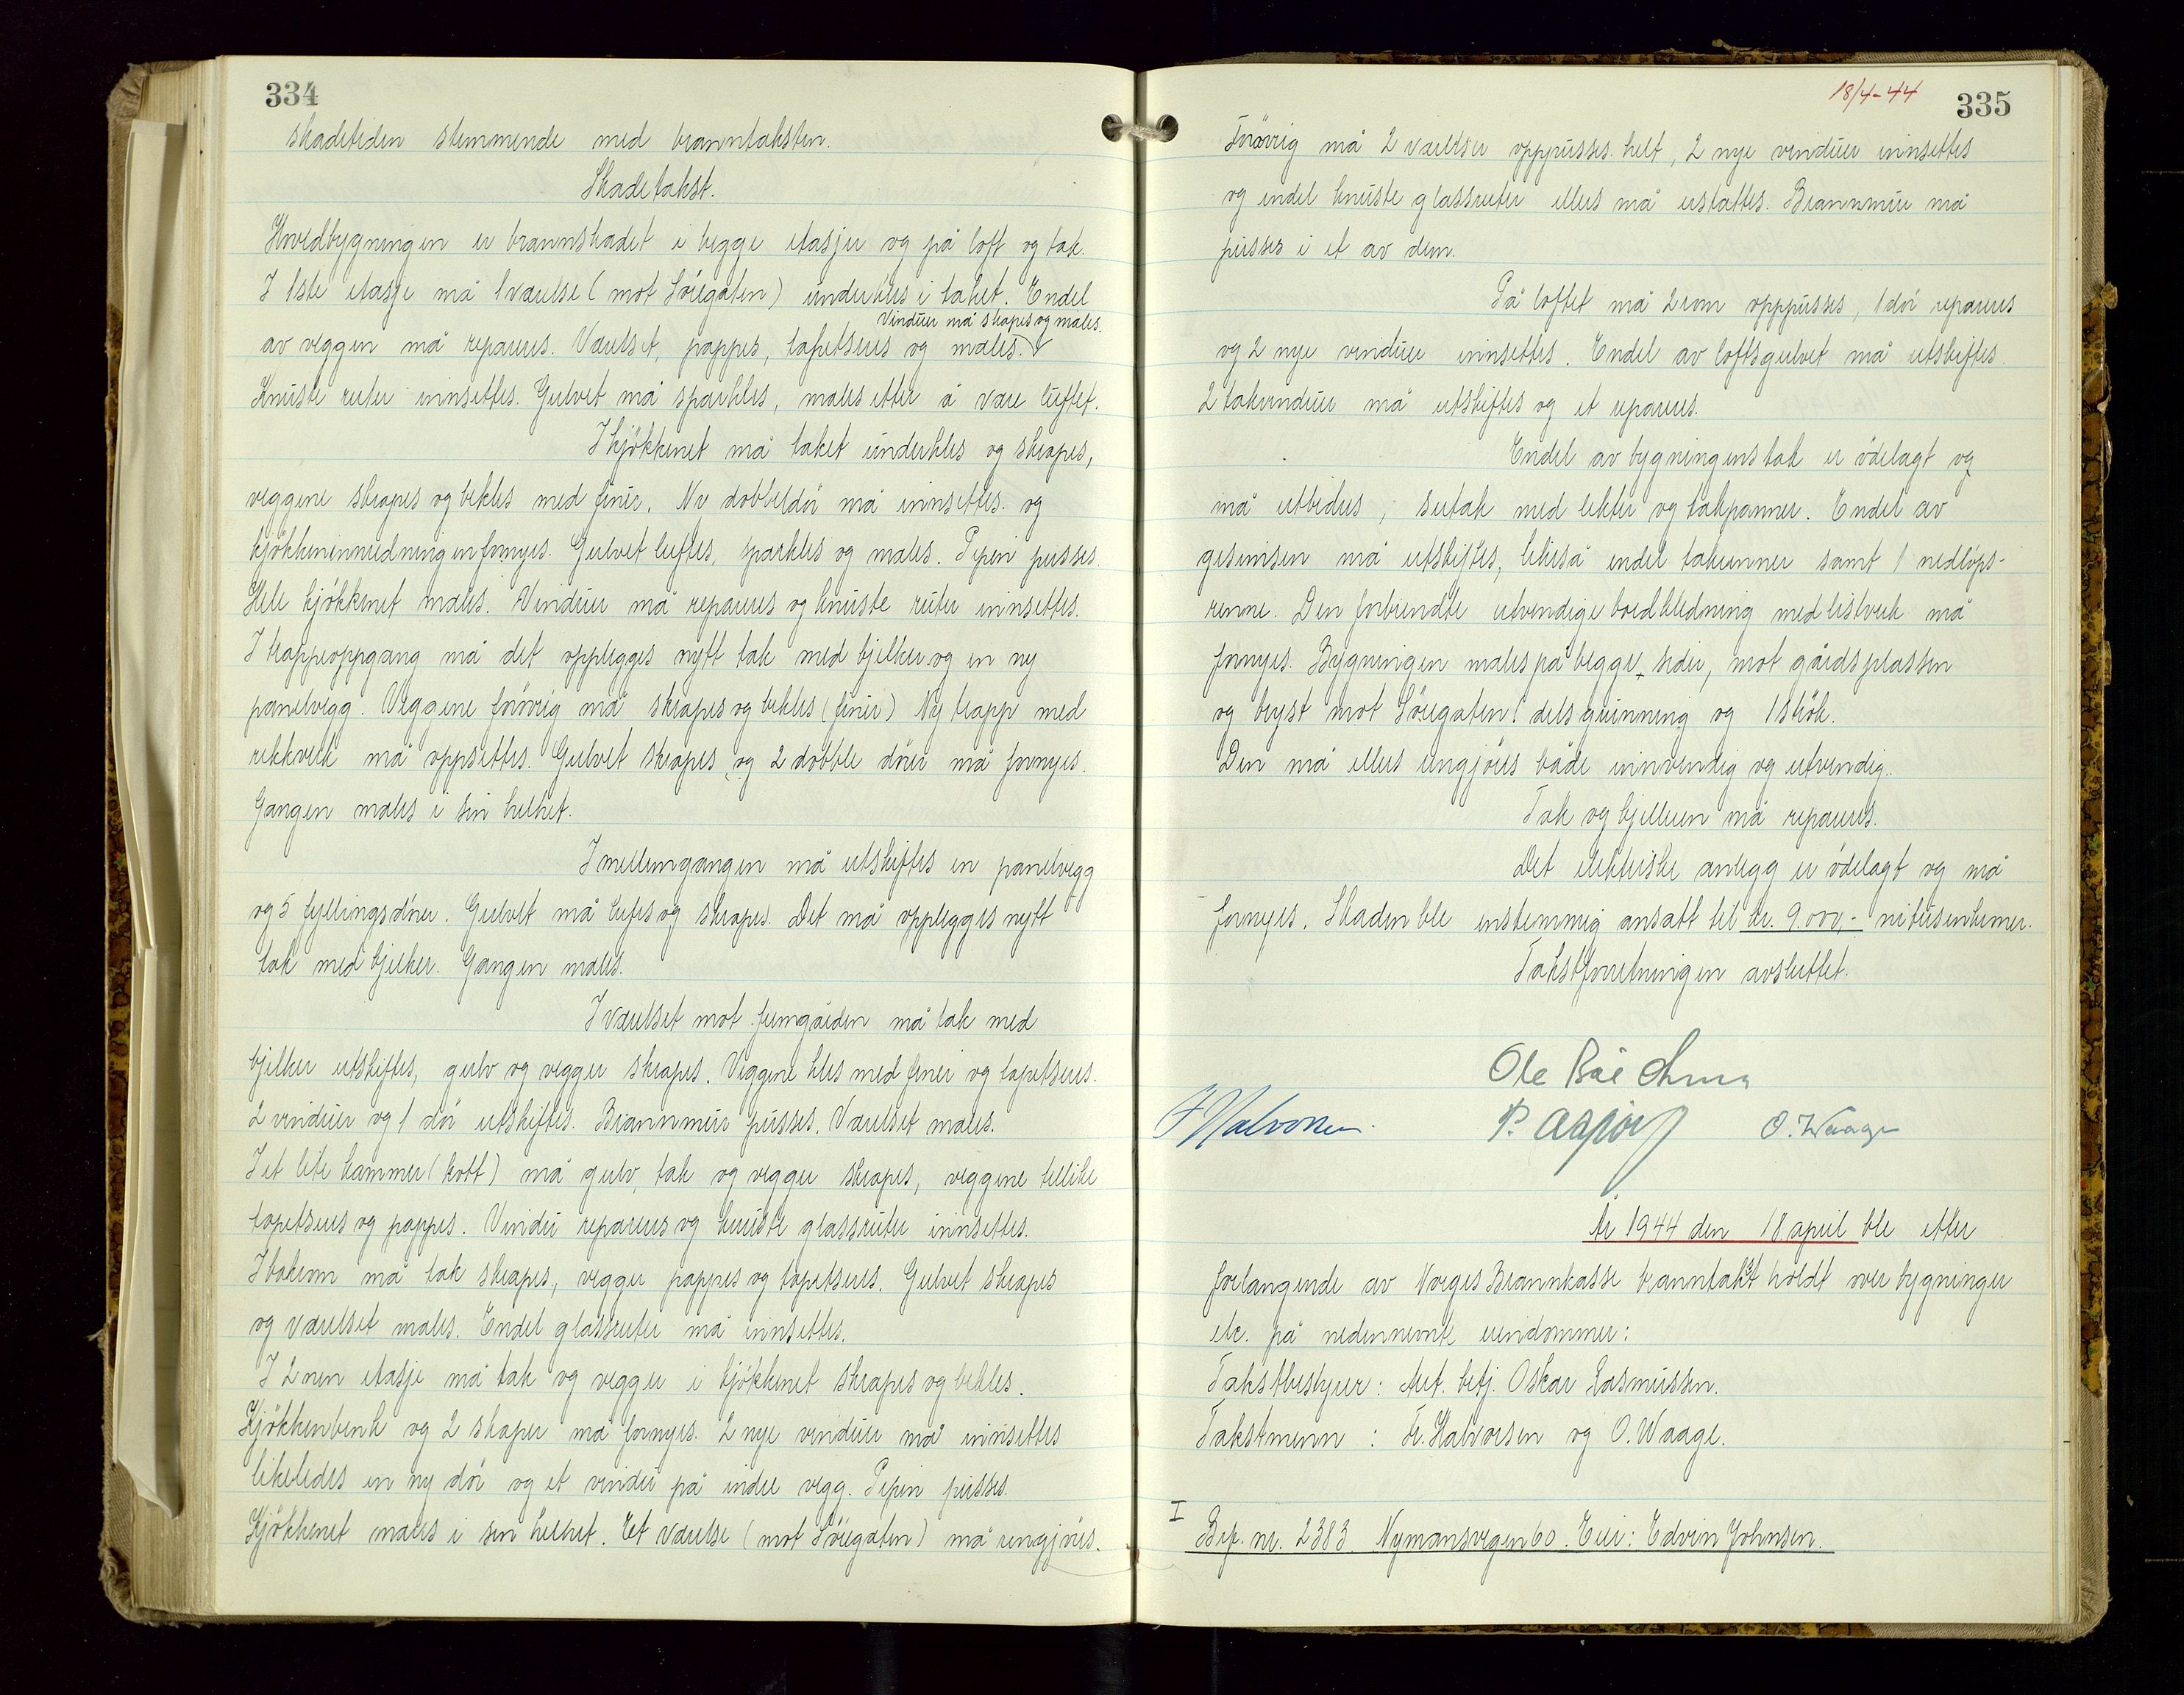 334
skadetiden stemmende med branntaksten.
Skadetakst.
Hovedbygningen er brannskadet i begge etasjer og på loft og tak.
I 1ste etasje må 1 værelse (mot Sörégaten) underkles i taket. Endel
Vinduer må skrapes og males.
av veggen må repareres. Værelset, pappes, tapetseres og males.
Knuste ruter innsettes. Gulvet må sparkles, males etter å være luftet.
I kjökkenet må taket underkles og skrapes,
veggene skrapes og bekles med finér. Ny dobbeldör må innsettes og
kjökkeninnredningen fornyes. Gulvet luftes, sparkles og males. Pipen pusses.
Hele kjökkenet males. Vinduer må repareres og knuste ruter innsettes.
I trappeoppgang må det opplegges nytt tak med bjelker og en ny
panelvegg. Veggene forövrig må skrapes og bekles (finér) Ny trapp med
rekkverk må oppsettes. Gulvet skrapes og 2 dobble dörer må fornyes.
Gangen males i sin helhet.
I mellemgangen må utskiftes en panelvegg
og 5 fyllingsdörer. Gulvet må luftes og skrapes. Det må opplegges nytt
tak med bjelker. Gangen males.
I værelset mot jerngården må tak med
bjelker utskiftes, gulv og vegger skrapes. Veggene kles med finér og tapetseres.
2 vinduer og 1 dör utskiftes. Brannmur pusses. Værelset males.
I et lite kammer (kott) må gulv, tak og vegger skrapes, veggene tillike
tapetseres og pappes. Vindu repareres og knuste glassruter innsettes.
I bakrom må tak skrapes, vegger pappes og tapetseres. Gulvet skrapes
og værelset males. Endel glassruter må innsettes.
I 2nen etasje må tak og vegger i kjökkenet skrapes og bekles.
Kjökkenbenk og 2 skaper må fornyes. 2 nye vinduer må innsettes
likeledes en ny dör og et vindu på indre vegg. Pipen pusses.
Kjökkenet males i sin helhet. Et værelse (mot Sörégaten) må rengjöres.
18/4-44
335
Forövrig må 2 værelser oppusses helt, 2 nye vinduer innsettes
og endel knuste glassruter ellers må erstattes. Brannmur må
pusses i et av dem.
På loftet må 2 rom opppusses, 1 dör repareres
og 2 nye vinduer innsettes. Endel av loftsgulvet må utskiftes.
2 takvinduer må utskiftes og et repareres.
Endel av bygningens tak er ödelagt og
må utbedres, sutak med lekter og takpanner. Endel av
gesimsen må utskiftes, likeså endel takrenner samt 1 nedlöps-
renne. Den forbrendte utvendige bordkledning med listverk må
fornyes. Bygningen males på begge sider, mot gårdsplassen
og bryst mot Sörégaten: dels grunning og 1 strök.
Den må ellers rengjöres både innvendig og utvendig.
Tak og bjelken må repareres.
Det elektriske anlegg er ödelagt og må
fornyes. Skaden ble enstemmig ansatt til kr. 9.000,- nitusenkroner.
Takstforretningen avsluttet.
Ole
P.
O. Waage
År 1944 den 18. april ble etter
forlangende av Norges Brannkasse branntakst holdt over bygninger
etc. på nedennevnte eiendommer:
Takstbestyrer: Aut. betj. Oskar Rasmussen.
Takstmenn: Fr. Halvorsen og O. Waage.
I
Brf. nr. 2383 Nymansvegen 60. Eier: Edvin Johnsen.